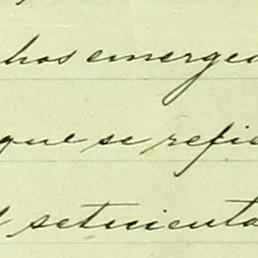 hos emerge
que se refie
setecienta